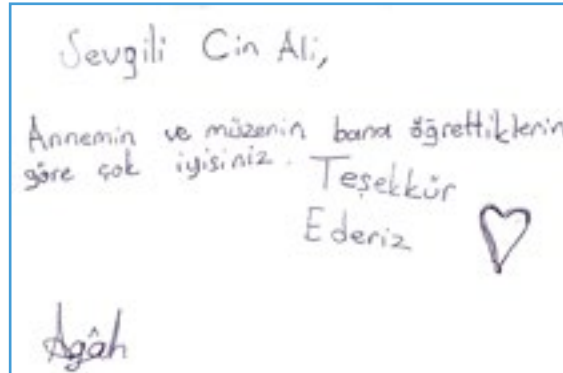 Sevgili Cin Ali,
Annemin ve müzenin bana öğrettiklerin
göre çok iyisiniz. Teşekkür
Ederiz
Agâh